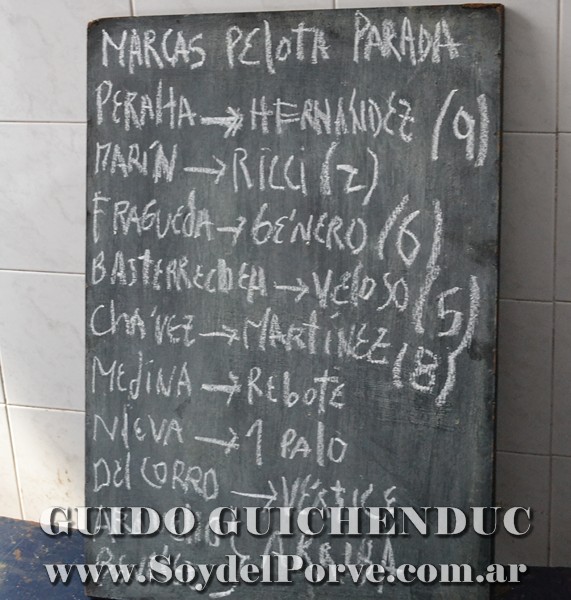 MARCAS PELOTA PARADA
PERALTA → HERNÁNDEZ (9)
MARÍN → RICCI (2)
FRAGUEDA → GÉNERO (6)
BASTERRECHEA → VELOSO (5)
CHÁVEZ → MARTÍNEZ (8)
MEDINA → REBOTE
NIEVA → 1 PALO
DEL CORRO → VÉRTICE
ARRIBA
GUIDO GUICHENDUC
www.SoydelPorve.com.ar